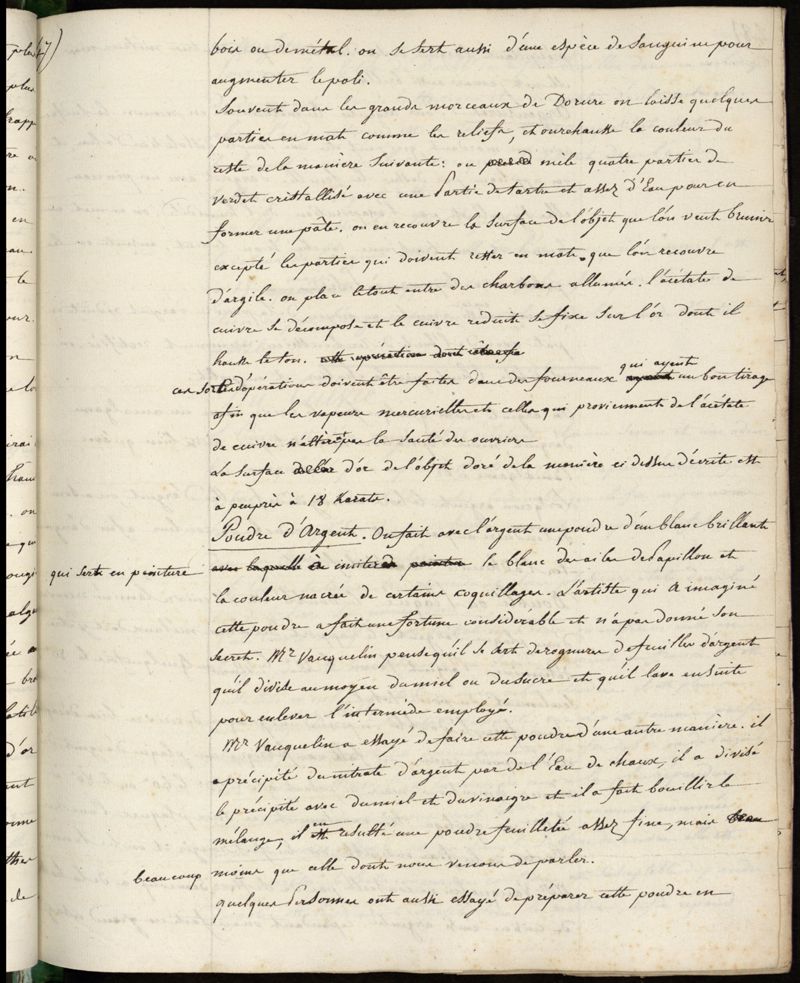 bois ou de métal. on se sert aussi d'une espèce de Sanguine pour
augmenter le poli.
Souvent dans les grands morceaux de Dorure on laisse quelques
parties en mat comme les reliefs, et on rehausse la couleur du
reste de la manière Suivante: on prend mêle quatre parties de
verdet cristallisé avec une Partie de tartre et assez d'Eau pour en
former une pâte. on en recouvre la Surface de l'objet que l'on veut brunir
excepté les parties qui doivent rester en mat, que l'on recouvre
d'argile. on place le tout entre des charbons allumés. l'acétate de
cuivre se décompose et le cuivre réduit se fixe Sur l'or dont il
hausse le ton. cette opération doit être fa
ces Sortes d'opérations doivent être faites dans des fourneaux ayant qui ayent un bon tirage
afin que les vapeurs mercurielles et celles qui proviennent de l'acétate
de cuivre n'altèrent pas la Santé des ouvriers
La Surface de l'or d'or de l'objet doré de la manière ci dessus décrite est
à peu près à 18 Karats.
Poudre d'Argent. On fait avec l'argent une poudre d'un blanc brillant
qui sert en peinture
avec laquelle on imite en peinture le blanc des ailes de Papillon et
la couleur nacrée de certains coquillages. L'artiste qui a imaginé
cette poudre a fait une fortune considérable et n'a pas donné Son
Secret. Mr Vauquelin pense qu'il se sert de rognures de feuilles d'argent
qu'il divise au moyen du miel ou du Sucre et qu'il lave ensuite
pour enlever l'intermède employé.
Mr Vauquelin a essayé de faire cette poudre d'une autre manière. il
a précipité du nitrate d'argent par de l'Eau de chaux, il a divisé
le précipité avec du miel et du vinaigre et il a fait bouillir le
mélange, il en est resulté une poudre feuilletée assez fine, mais beau
beaucoup moins que celle dont nous venons de parler.
quelques Personnes ont aussi essayé de préparer cette poudre en